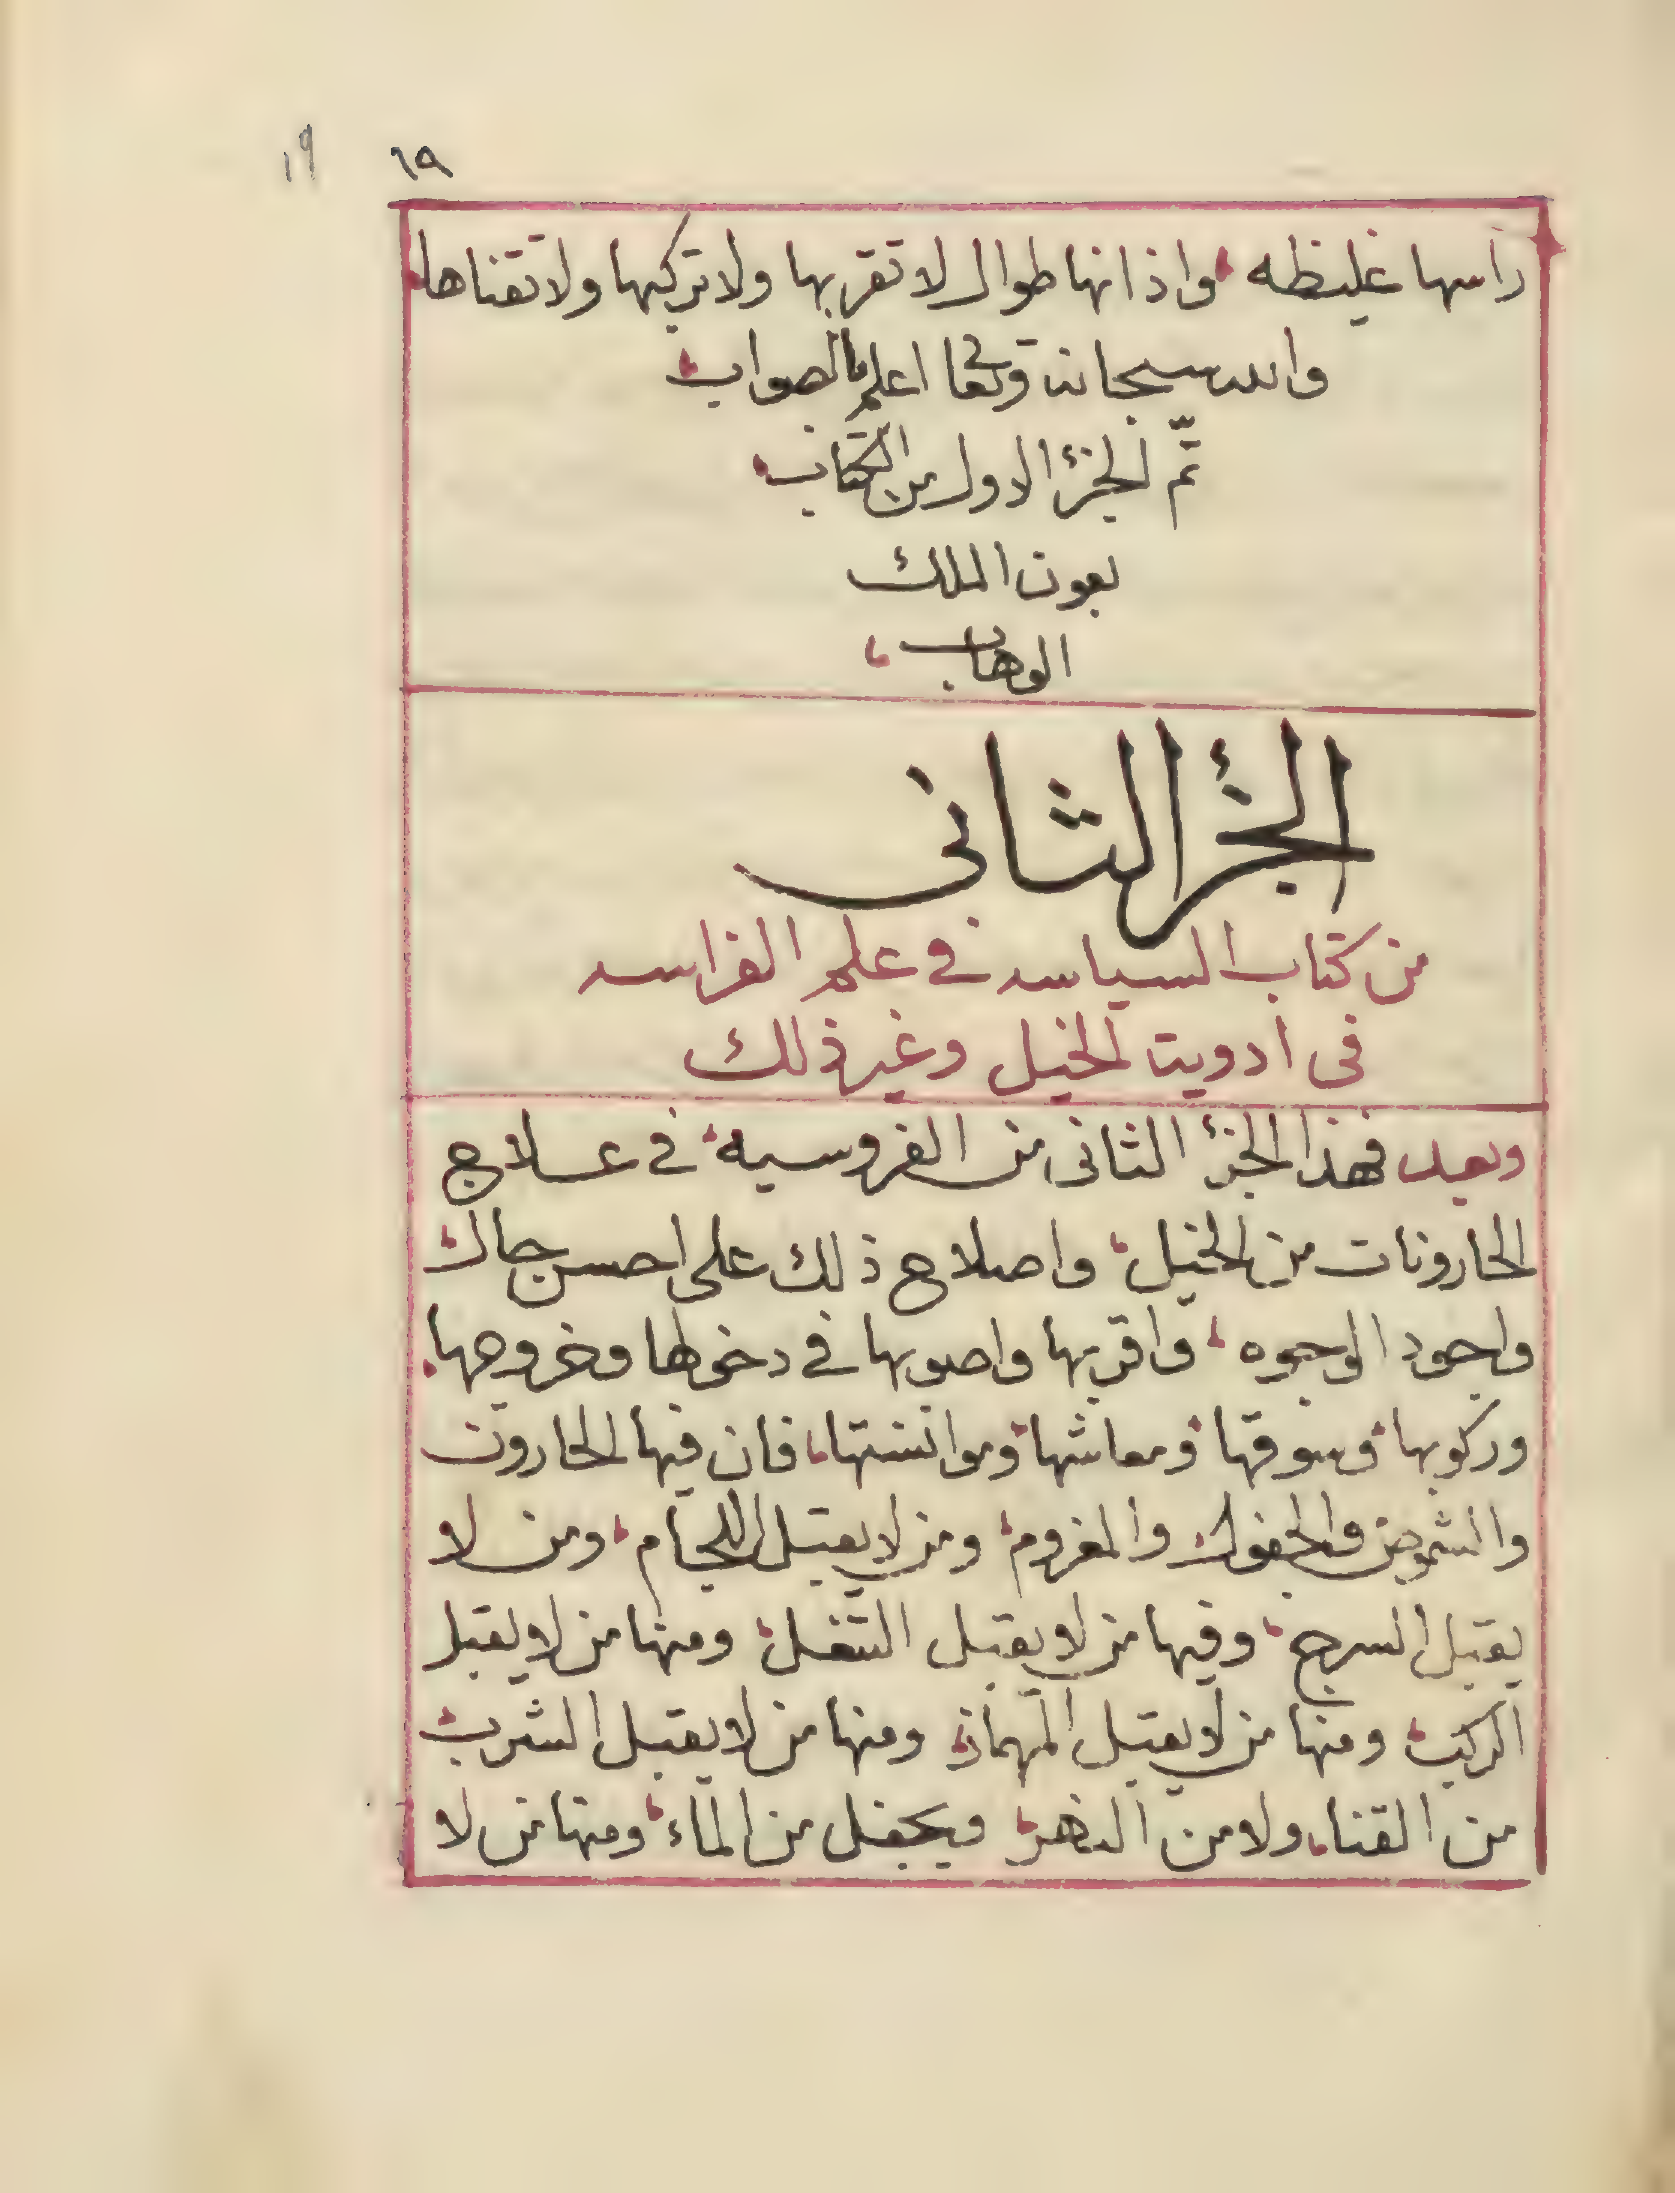 ١٩ ١٩
راسها غليظه واذانها طوال لا تقربها ولا تركبها ولا تقناها
والله سبحانه وتعا اعلم بالصواب
تم الجزء الاول من الكتاب
بعون الملك
الوهاب
الجزء الثانى
من كتاب السياسه في علم الفراسه
فى ادويت الخيل وغير ذلك
وبعد فهذا الجزء الثانى من الفروسيه في علاج
الحارونات من الخيل واصلاح ذلك على احسن حال
واجود الوجوه واقربها واصوبها في دخولها وخروجها
وركوبها وسوقها ومعاشها وموانستها فان فيها الحارون
والشموص والجفول والمغروم ومن لا يقبل اللجام ومن لا
يقبل السرج وفيها من لا يقبل التنغل ومنها من لا يقبل
الركب ومنها من لا يقبل المهماز ومنها من لا يقبل الشرب
من القنا ولا من النهر ويجفل من الماء ومنها من لا